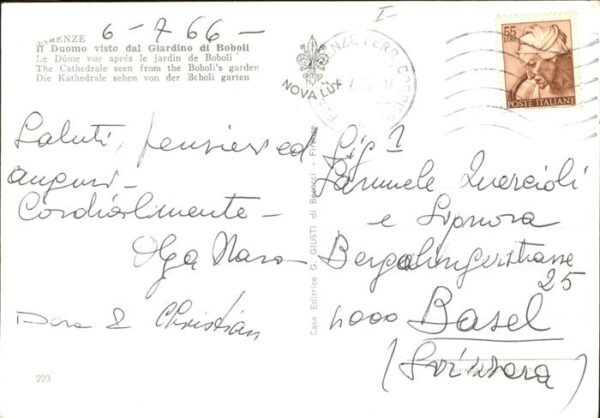 6-7-66-
FIRENZE
Il Duomo visto dal Giardino di Boboli
Le Dôme vue après le jardin de Boboli
The Cathedrale seen from the Boboli's garden
Die Kathedrale sehen von der Boboli garten
I-
NOVA LUX
55
LIRE
POSTE ITALIANE
Saluti, pensieri ed
auguri-
Cordialmente-
Olga
Dora & Christian
Sig.
Samuele Quercioli
e Signora
25
4000 Basel
(Svizzera)
Casa Editrice G. GIUSTI di Firenze
223